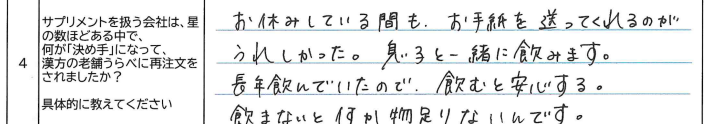 4
サプリメントを扱う会社は、星
の数ほどある中で、
何が「決め手」になって、
漢方の老舗うらべに再注文を
されましたか？
具体的に教えてください
お休みしている間も、お手紙を送ってくれるのが
うれしかった。 と一緒に飲みます。
長年飲んでいたので、飲むと安心する。
飲まないと何か物足りないんです。